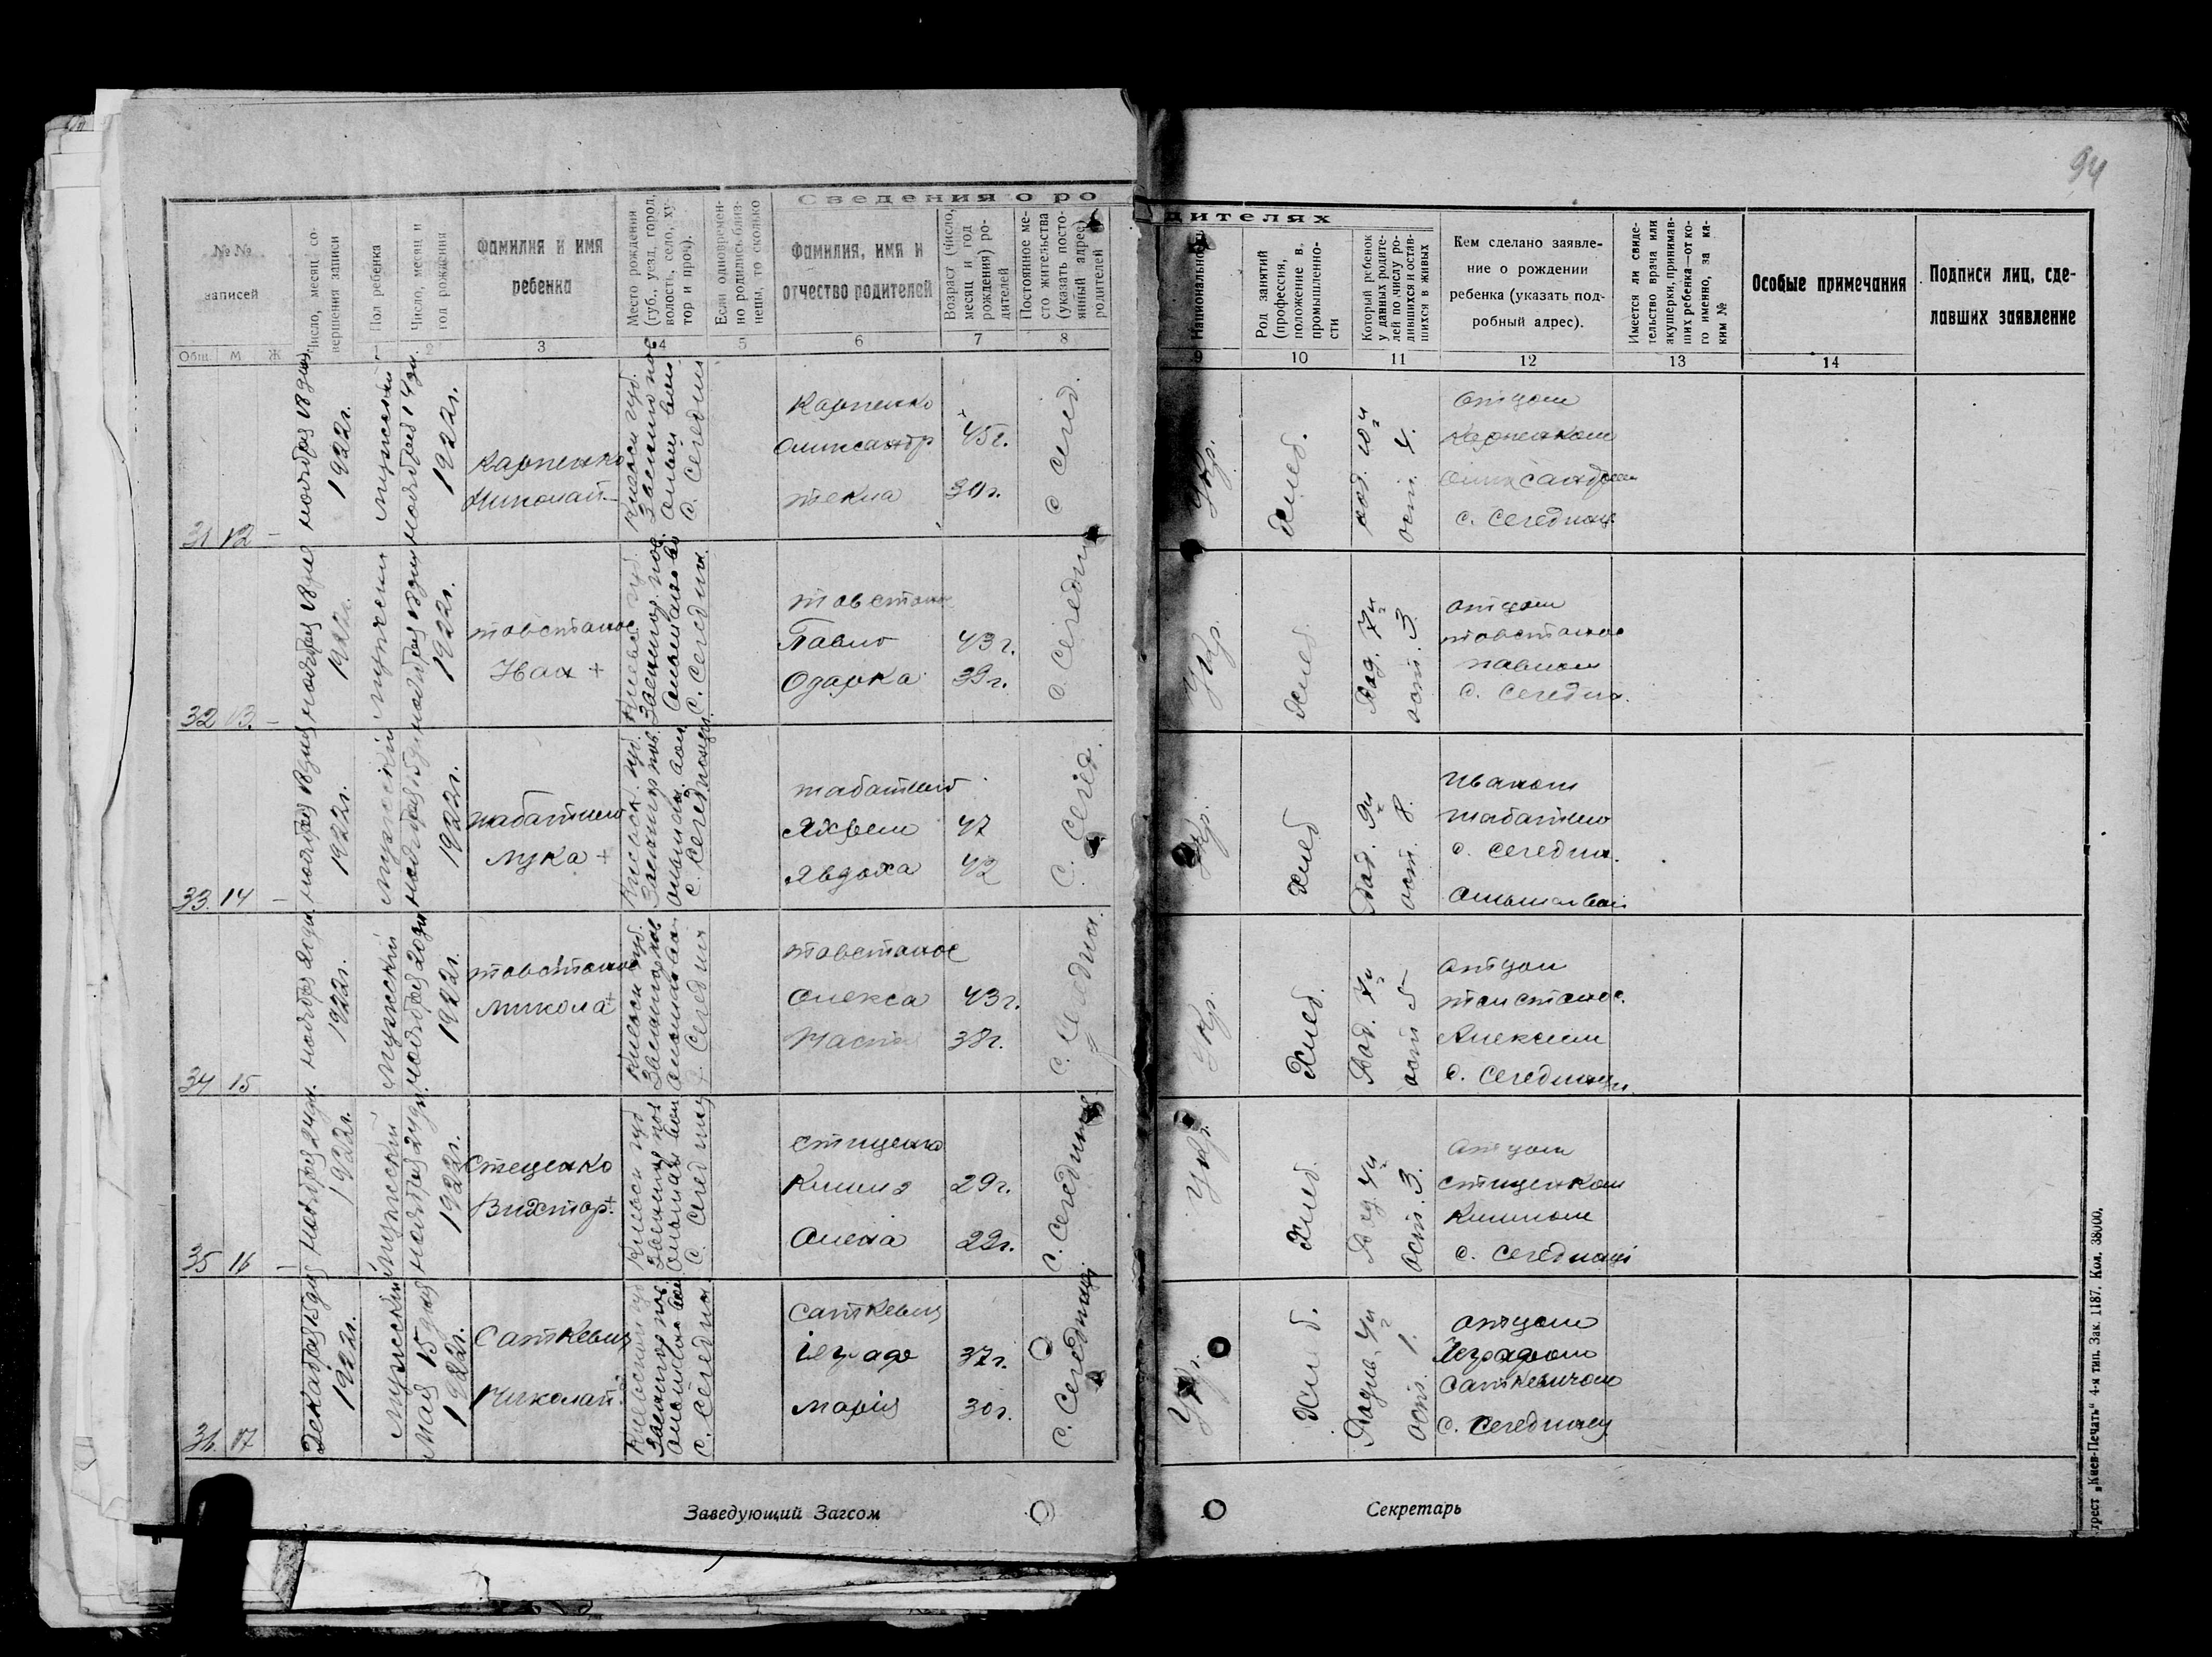 94
Сведения о ро
дителях
№ №
записей
Общ. М Ж
Число, месяц со-
вершения записи
Пол ребенка
1
Число, месяц и
год рождения
2
Фамилия и имя
ребенка
3
Место рождения
(губ., уезд, город,
волость, село, ху-
тор и проч).
4
Если одновремен-
но родились близ-
нецы, то сколько
5
Фамилия, имя и
отчество родителей
6
Возраст (число,
месяц и год
рождения) ро-
дителей
7
Постоянное ме-
сто жительства
(указать посто-
янный адрес)
родителей
8
Национальность
9
Род занятий
(профессия,
положение в
промышленно-
сти
10
Который ребенок
у данных родите-
лей по числу ро-
дившихся и остав-
шихся в живых
11
Кем сделано заявле-
ние о рождении
ребенка (указать под-
робный адрес).
12
Имеется ли свиде-
тельство врача или
акушерки, принимав-
ших ребенка—от ко-
го именно, за ка-
ким №
13
Особые примечания
14
Подписи лиц, сде-
лавших заявление
31 12 –
ноября 18 дня
1922г.
мужеский
ноября 14 дн.
1922г.
Карпенко
Николай
с. Середина
Карпенко
Олександр 45г.
текла 30г.
с Серед.
Укр.
Хлеб.
род. 10й
ост. 4.
отцом
Карпенком
Олександром
с. Серединц.
32 13. –
1922г.
1922г.
товстонос
Иван +
с. Середина
товстонос
Павло 43г.
Одарка 39г.
с. Середин
Укр.
Хлеб.
Род. 7й
ост. 3.
отцом
товстонос
павлом
с. Середин.
33. 14 –
ноября 18 дня
1922г.
мужеский
1922г.
Лука +
Явхрем 47
Явдоха 42
с. Серед.
Укр.
Хлеб
Род. 9й
ост. 8.
Иваном
с. Середин.
34 15
ноября 20 дн.
1922г.
мужеский
ноября 20 дн
1922г.
товстонос
микола +
с. Середин
товстонос
Олекса 43г.
Настя 38г.
с. Середин.
Укр.
Хлеб.
Род. 7й
ост 5
отцом
Алексеем
с. Серединци
35 16 –
ноября 24 дн.
1922г.
мужеский
ноября 24 дн.
1922г.
Стеценко
Виктор +
с. Середина
стиценко
Клим 29г.
Олена 22г.
с. Середина
Укр.
Хлеб.
Род. 4й
ост. 3.
отцом
стиценком
Климом
с. Серединці
36. 17
Декабря 15 дня
1922г.
Мужеский
мая 15 дня
1922г.
Саткевич
Николай
с. Середин
Саткевич
37г.
марія 30г.
с. Серединці
Укр.
Хлеб.
Родив. 4й
ост. 1.
отцом
Саткевичом
с. Серединец
Заведующий Загсом
Секретарь
трест „Киев-Печать“ 4-я тип. Зак. 1187. Кол. 38000.